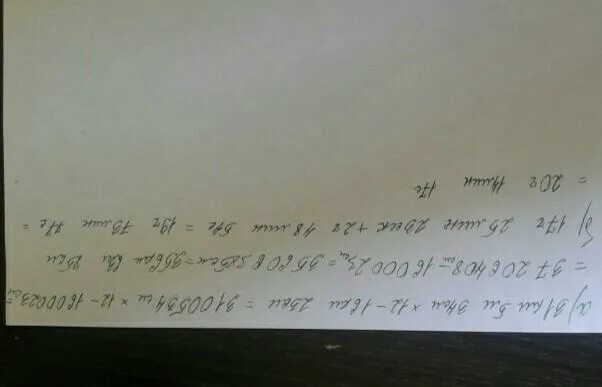 а) 31 км 5 м 34 см × 12 – 16 км 23 см = 3100534 см × 12 – 1600023 см =
= 37206408 см – 1600023 см = 35606385 см = 356 км 85 см
б) 17 ч 25 мин 23 сек + 2 ч 48 мин 54 с = 19 ч 73 мин 77 с =
= 20 ч 14 мин 17 с